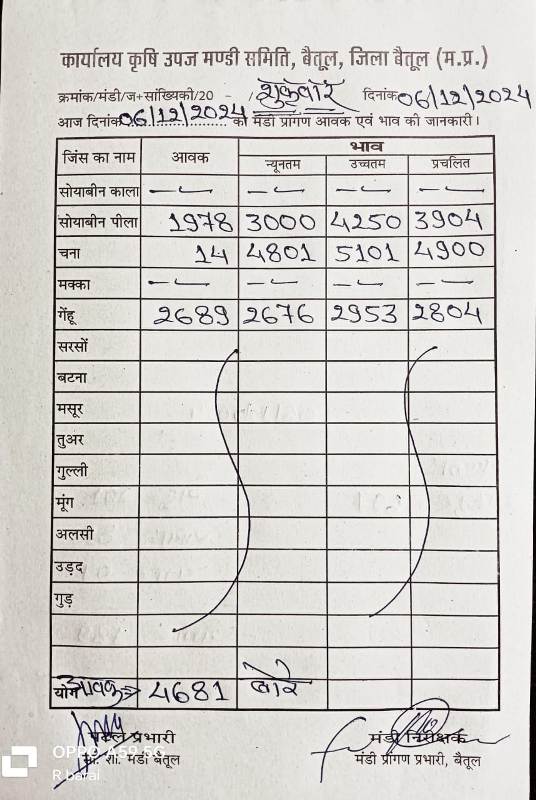 कार्यालय कृषि उपज मण्डी समिति, बैतूल, जिला बैतूल (म.प्र.)
क्रमांक/मंडी/ज+सांख्यिकी/20 - / शुक्रवार दिनांक 06/12/2024
आज दिनांक 06/12/2024 को मंडी प्रांगण आवक एवं भाव की जानकारी।
जिंस का नाम आवक भाव
न्यूनतम उच्चतम प्रचलित
सोयाबीन काला — — — —
सोयाबीन पीला 1978 3000 4250 3904
चना 14 4801 5101 4900
मक्का — — — —
गेंहू 2689 2676 2953 2804
सरसों
बटना
मसूर
तुअर
गुल्ली
मूंग
अलसी
उड़द
गुड़
योग आवक => 4681 बोरे
प्रभारी मंडी निरीक्षक
सां. शा. मंडी बैतूल मंडी प्रांगण प्रभारी, बैतूल
OPPO A59 5G
R barai